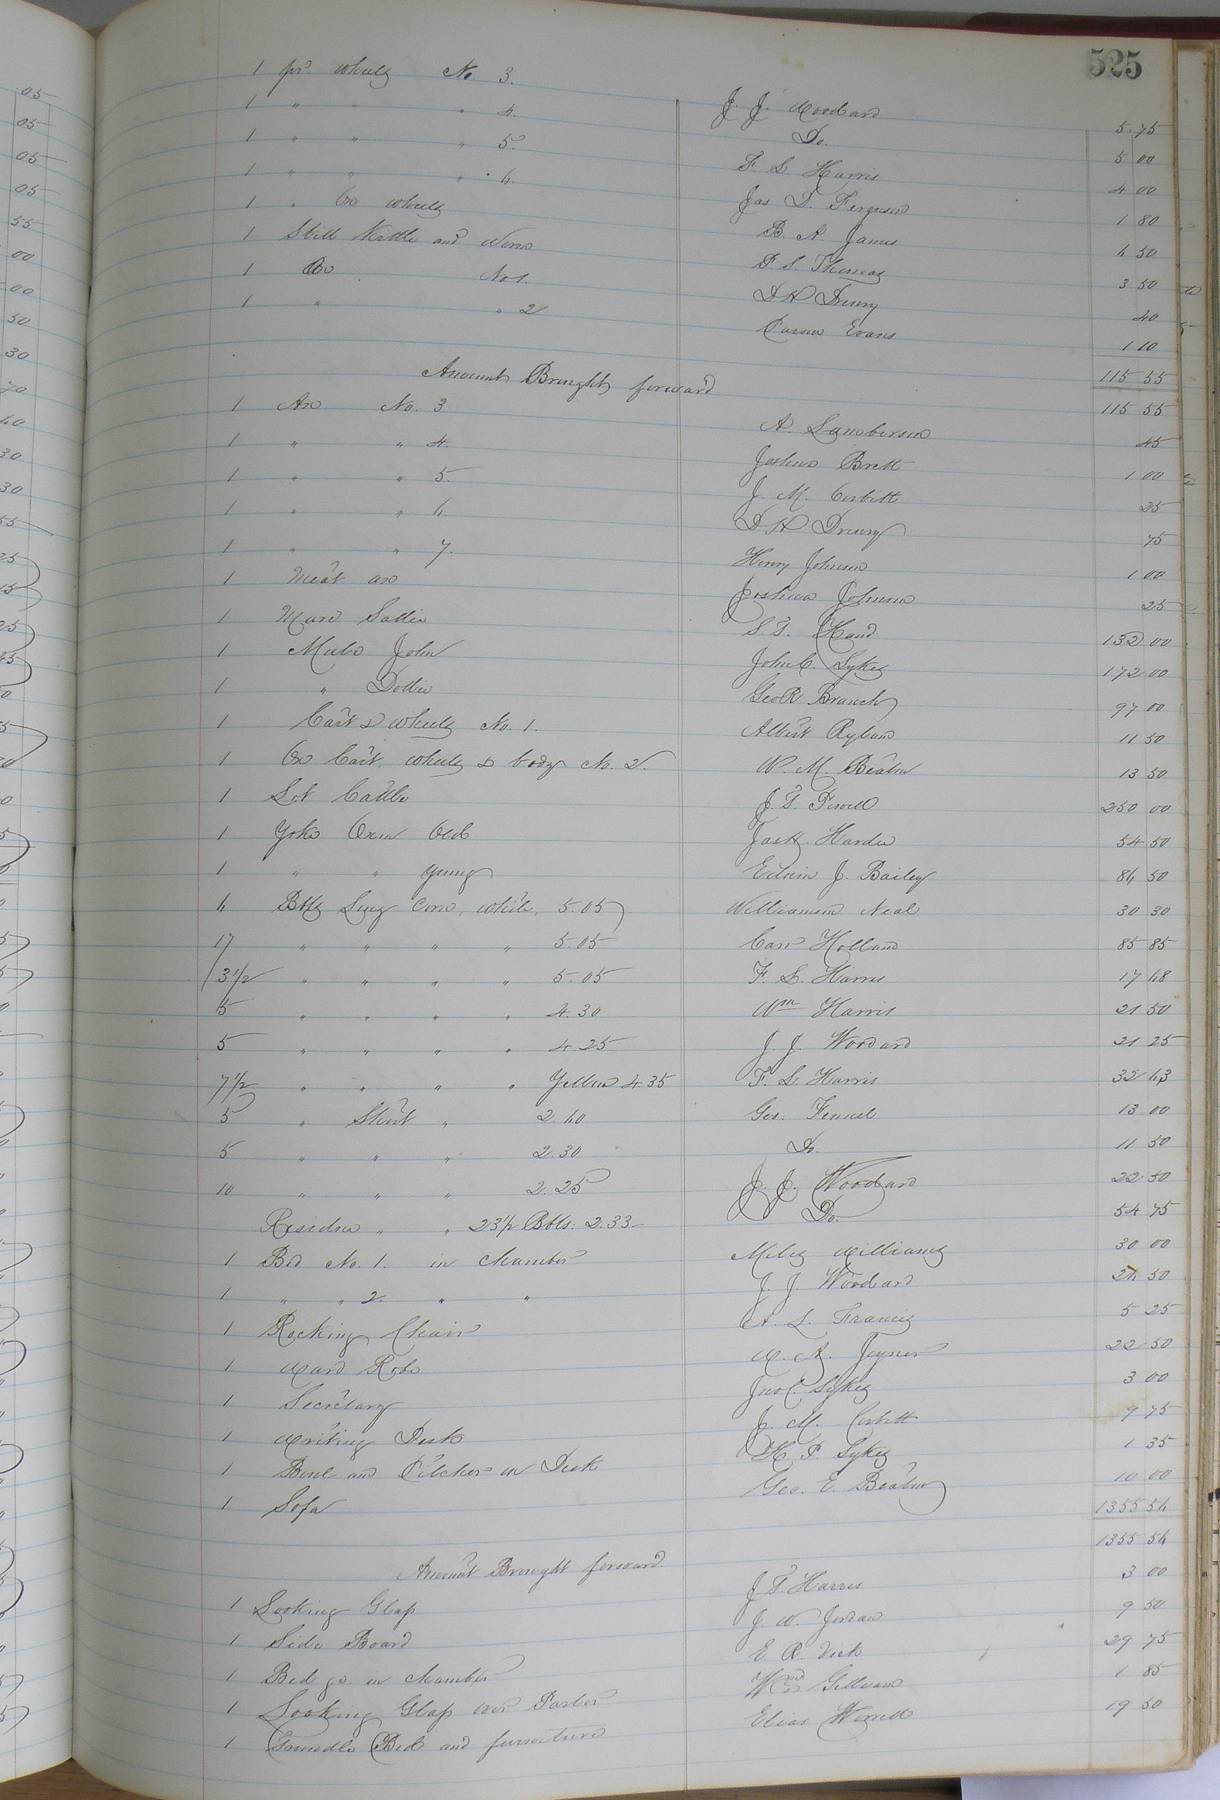 525
1 pr. wheels No 3. J. J. Woodard 5 75
1 " " " 4. Do. 5 00
1 " " " 5. F. L. Harris 4 00
1 " " " 6. Jas D. Ferguson 1 80
1 " Ox wheels B. A James 6 50
1 Still Kettle and Worm P. S. Thomas 3 50
1 Axe No 1. D H Drewry 40
1 " " 2 Evans 1 10
115 55
Amount Brought forward 115 55
1 Axe No. 3 A. Lamberson 45
1 " " 4. Joshua Brett 1 00
1 " " 5. J. M. Corbitt 25
1 " " 6. D H Drewry 75
1 " " 7. Henry Johnson 1 00
1 Meat axe Joshua Johnson 25
1 Mare Sallie S. T. Hand 132 00
1 Mule John John C. Sykes 172 00
1 " Dollie Geo R Branch 97 00
1 Cart & wheels No. 1. Albert Ryland 11 50
1 Ox Cart. wheels & body No. 2. W. M. Beaton 13 50
1 Lot Cattle J. T. 250 00
1 Yoke Oxen Old Jack Hardee 54 50
1 " " young Edwin J. Bailey 86 50
6 Bbls Long Corn, white, 5.05 Williamson Neal 30 30
17 " " " " 5.05 Carr Holland 85 85
3 1/2 " " " " 5.05 F. L. Harris 17 68
5 " " " " 4.30 Wm Harris 21 50
5 " " " " 4 25 J. J. Woodard 21 25
7 1/2 " " " " Yellow 4.35 F. L. Harris 32 63
5 " Short " 2.60 Geo. Fennel 13 00
5 " " " 2.30 Do. 11 50
10 " " " 2.25 J. J. Woodard 22 50
Residue " " 23 1/2 Bbls. 2.33 Do. 54 75
1 Bed No. 1. in Chamber Miles Williams 30 00
1 " " 2. " " J. J. Woodard 26 50
1 Rocking Chair A. L. Francis 5 25
1 Ward Robe W. A. Joyner 22 50
1 Secretary Jno C Sykes 3 00
1 Writing Desk J. M. Corbitt 9 75
1 Bowl and Pitcher in Desk H. P. Sykes 1 35
1 Sofa Geo. E. Beaton 10 00
1355 54
Amount Brought forward 1355 54
1 Looking Glass J. T. Harris 3 00
1 Side Board J W Jordan 9 50
1 Bed &c. in Chamber E. R. Vick 29 75
1 Looking Glass over Parlor Gillman 1 85
1 Trundle Bed and furniture Elias Worrell 19 50